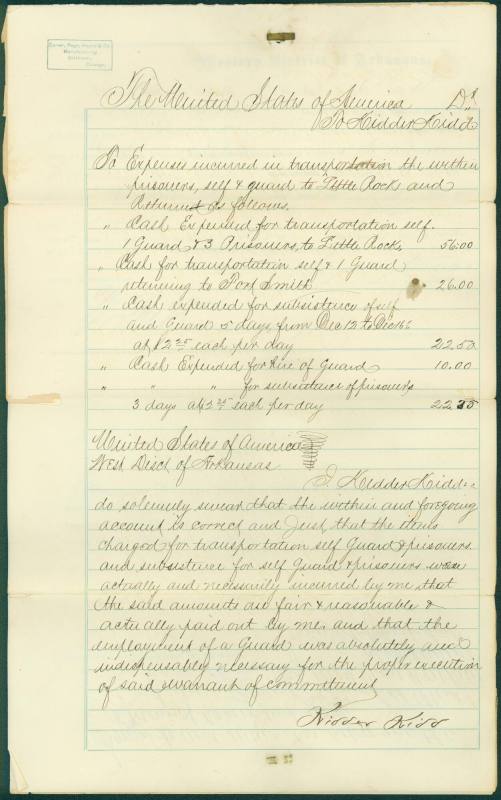 The United States of America Dr
To Kidder Kidd
To Expenses incurred in transportation the within
prisoners, self & guard to Little Rock and
Return as follows.
" Cash Expended for transportation self.
1 Guard, & 3 Prisoners, to Little Rock, 56.00
" Cash for transportation self & 1 Guard
returning to Fort Smith 26.00
" Cash expended for subsistence of self
and Guard 5 days from Dec 12 to Dec 16
at $2 25 each per day 22.50
" Cash Expended for hire of Guard 10.00
" " " for subsistence of prisoners
3 days at 2 25 each per day
United States of America
West Disct of Arkansas
I Kidder Kidd
do solemnly swear that the within and foregoing
account is correct and Just that the items
charged for transportation self Guard & prisoners
and subsistence for self Guard & prisoners were
actually and necessarily incurred by me that
the said amounts are fair & reasonable &
actually paid out by me, and that the
employment of a Guard was absolutely and
indispensably necessary for the proper execution
of said warrant of commitment
Kidder Kidd